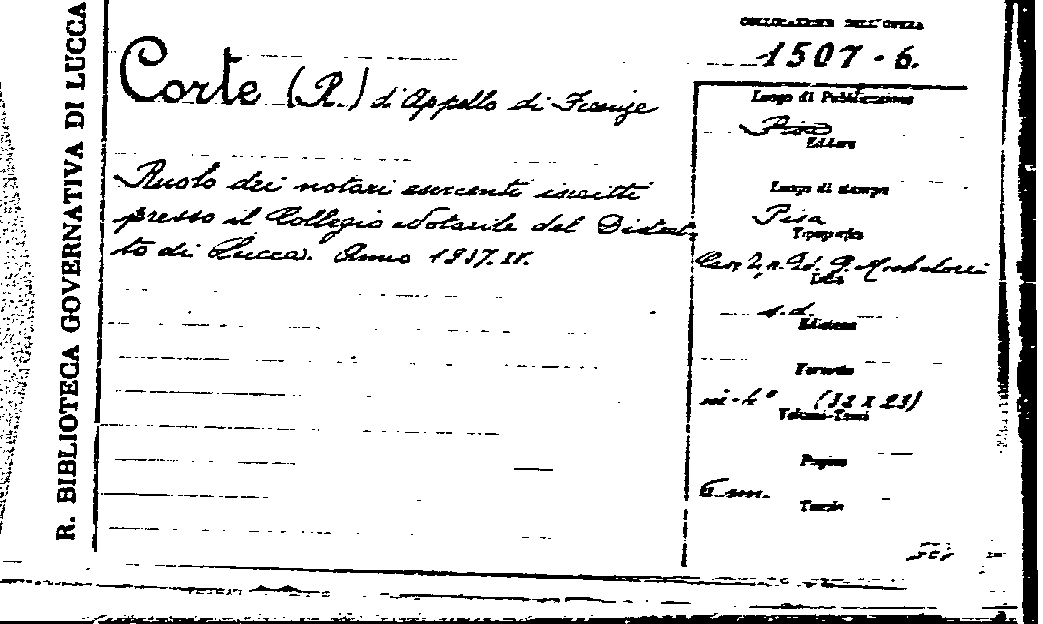 R. BIBLIOTECA GOVERNATIVA DI LUCCA
COLLOCAZIONE DELL'OPERA
1507-6.
Corte (R.) d'Appello di Firenze
Ruolo dei notari esercenti inscritti
presso il Collegio Notarile del Distret-
to di Lucca. Anno 1937.XV.
Luogo di Pubblicazione
Pisa
Editore
Luogo di stampa
Pisa
Tipografia
Data
s.d.
Edizione
Formato
in-4° (32 x 23)
Volume-Tomi
Pagine
6 nn.
Tavole